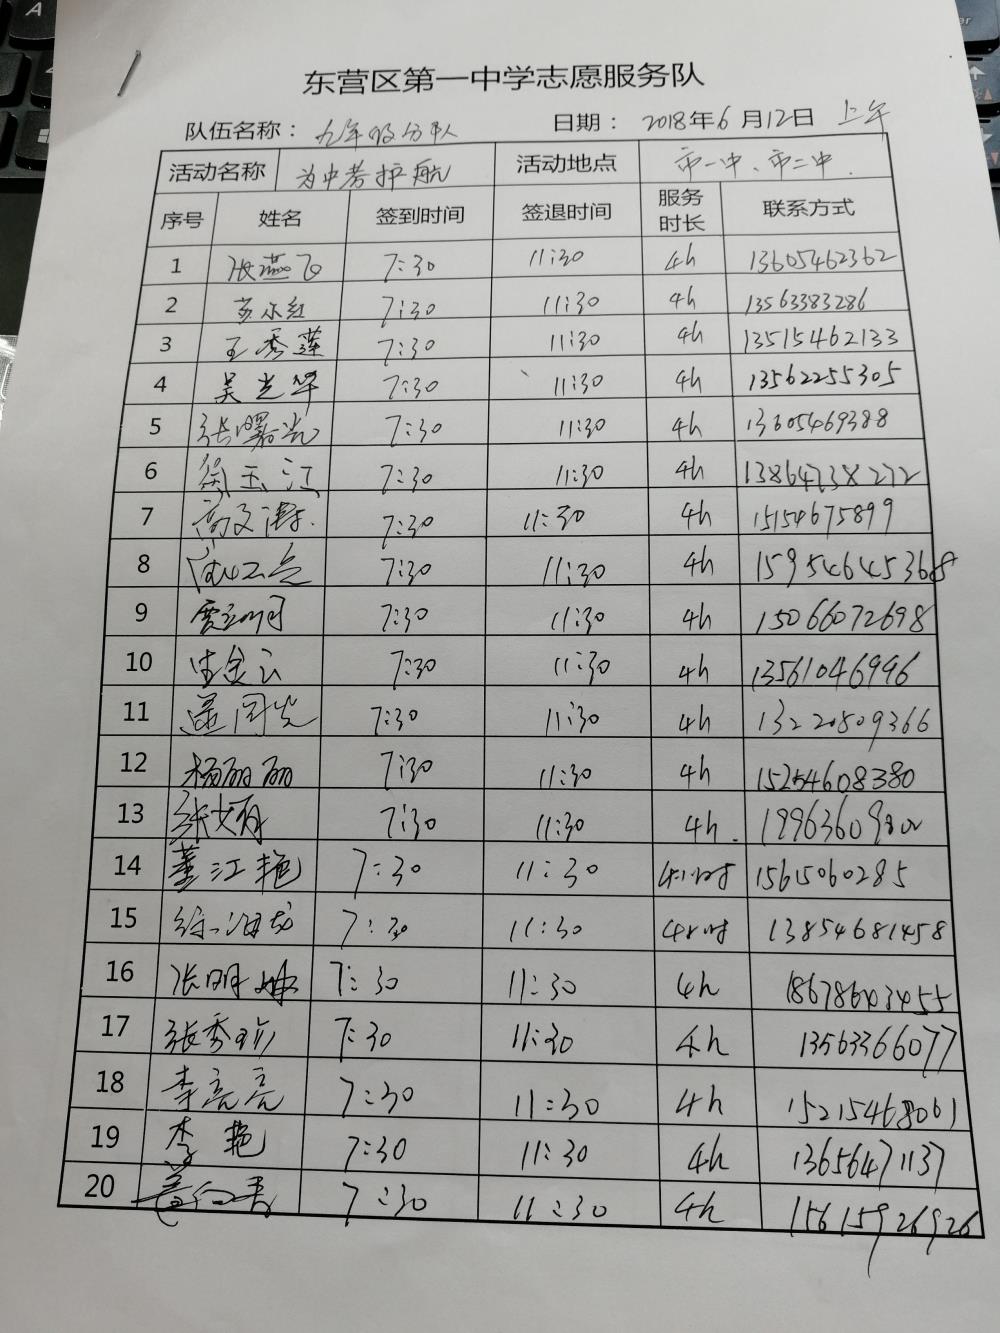 东营区第一中学志愿服务队
队伍名称：九年级分队 日期：2018年6月12日 上午
活动名称 为中考护航 活动地点 市一中、市二中.
序号 姓名 签到时间 签退时间 服务时长 联系方式
1 张燕飞 7:30 11:30 4h 13605462362
2 7:30 11:30 4h 13563383286
3 王秀莲 7:30 11:30 4h 13515462133
4 吴光华 7:30 11:30 4h 13562255305
5 张曙光 7:30 11:30 4h 13605469388
6 玉江 7:30 11:30 4h 13864738272
7 高文 7:30 11:30 4h 15154675899
8 7:30 11:30 4h
9 7:30 11:30 4h 15066072698
10 7:30 11:30 4h 13561046996
11 7:30 11:30 4h 13220809366
12 杨丽丽 7:30 11:30 4h 15254608380
13 张文娟 7:30 11:30 4h.
14 董江艳 7:30 11:30 4小时 15615060285
15 徐海龙 7:30 11:30 4小时 13854681458
16 张明 7:30 11:30 4h 18678603455
17 张秀珍 7:30 11:30 4h 13563366077
18 李亮亮 7:30 11:30 4h 15215468061
19 李艳 7:30 11:30 4h 13656471137
20 7:30 11:30 4h 15615926926